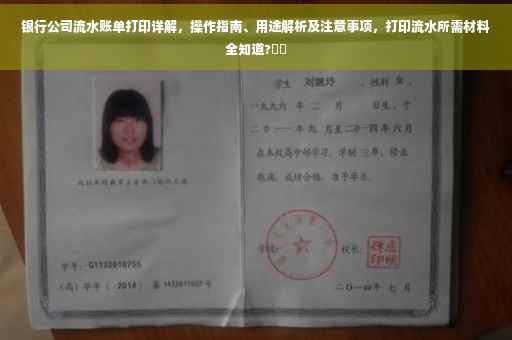 银行公司流水账单打印详解，操作指南、用途解析及注意事项，打印流水所需材料
全知道?
学生 刘婉玲 ，性别 女 ，
一九九六 年 二 月 日生，于
二0一一年九 月至二0一四年六月
在本校高中部学习，学制 三年，修业
期满，成绩合格，准予毕业。
学校： 校长：
学号： G1132010755
（高）毕字（ 2014 ）第 1432011007 号
二〇一四年 七 月